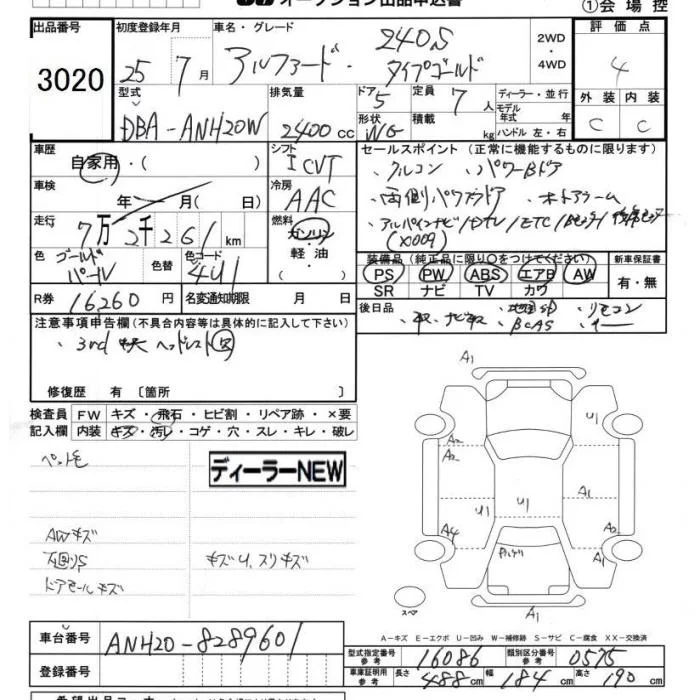 オークション出品申込書
①会場控
出品番号
3020
初度登録年月
25 7月
車名・グレード
アルファード・ 240S
タイプゴールド
2WD
・
4WD
評価点
4
外装 内装
C C
型式
DBA-ANH20W
排気量
2400cc
ドア 5
形状 WG
定員 7人
積載 kg
ディーラー・並行
モデル
年式 年
ハンドル 左・右
車歴
自家用・( )
シフト
I CVT
車検
年 月( 日)
冷房
AAC
走行
7万2千261km
燃料
ガソリン
・
軽油
・( )
色
ゴールド
パール
色替
色コード
4U1
R券 16260円
名変通知期限 月 日
セールスポイント (正常に機能するものに限ります)
・クルコン ・パワーBドア
・両側パワスラドア ・オートアラーム
・アルパインナビ/DTV/ETC/Bモニター/
(X009)
装備品 (純正品に限り○をつけてください)
PS PW ABS エアB AW
SR ナビ TV カワ
新車保証書
有・無
後日品
・取、ナビ取 ・リモコン
・BCAS
注意事項申告欄(不具合内容等は具体的に記入して下さい)
・3rd 中央 ヘッドレスト欠
修復歴 有〔箇所 〕
検査員
記入欄
FW キズ・飛石・ヒビ割・リペア跡・×要
内装 キズ・汚レ・コゲ・穴・スレ・キレ・破レ
ペット毛
ディーラーNEW
AWキズ
下回りS
ドアモールキズ
キズU、スリキズ
A1
U1
A2
A2
A1
U1
U1
A4
A2
A1
A1
スペア
A-キズ E-エクボ U-凹み W-補修跡 S-サビ C-腐食 XX-交換済
車台番号 ANH20-8289601
登録番号
型式指定番号
参考
16086
類別区分番号
参考
0575
車庫証明用
参考
長さ 488cm 幅 184cm 高さ 190cm
希望出品コーナー